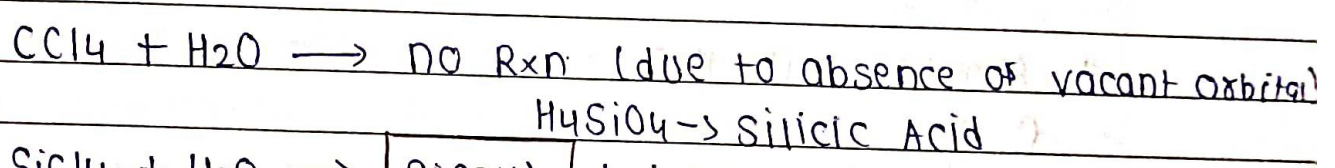 CCl4 + H2O → no Rxn (due to absence of vacant orbital)
H4SiO4 → Silicic Acid